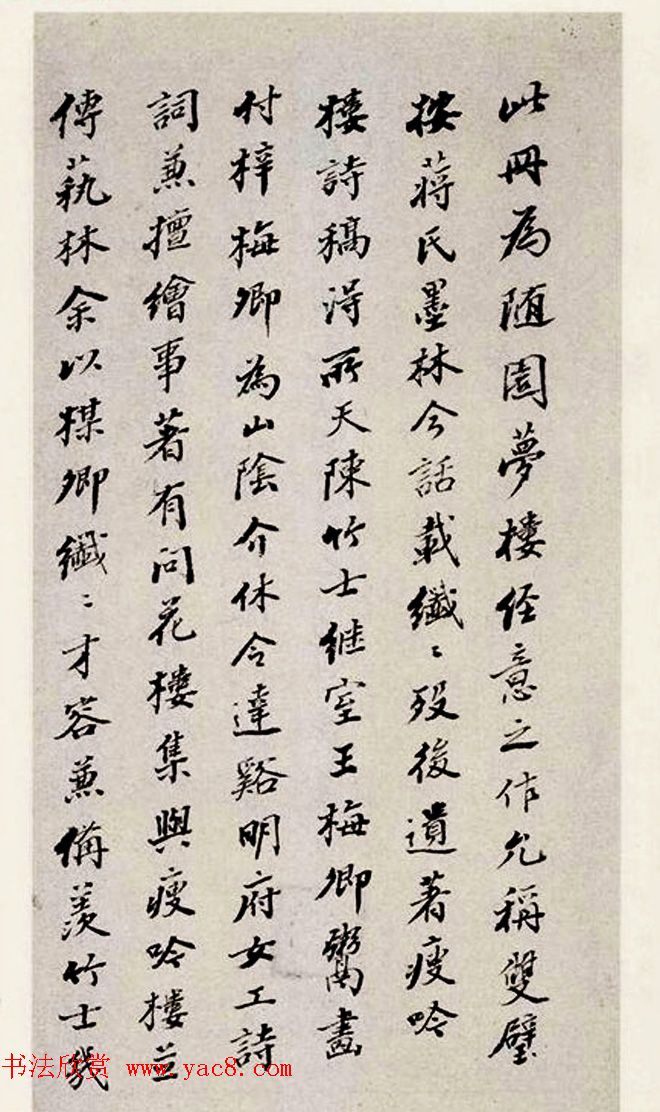 此冊為随園夢樓经意之作允稱雙璧
按蔣氏墨林今話載纖〻殁後遺著瘦吟
楼詩稿淂所天陳竹士継室王梅卿鬻畫
付梓梅卿為山陰介休令達谿明府女工詩
詞兼擅繪事著有问花樓集與瘦吟樓並
傳蓺林余以楳卿纖〻才容兼備羡竹士幾
书法欣赏 www.yac8.com